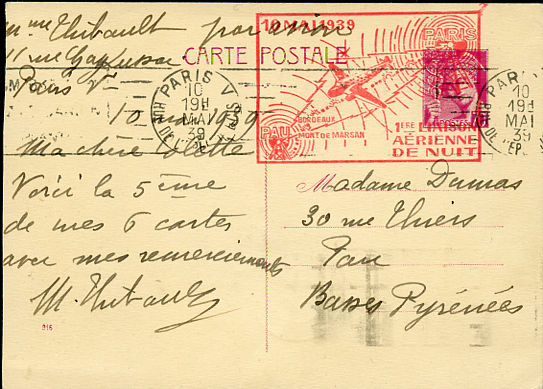 Mme Thibault par avion
11 rue Gay Lussac
Paris Ve
10 mai 1939
Ma chère Colette
Voici la 5ème
de mes 6 cartes
avec mes remerciements
M. Thibault
CARTE POSTALE
10 MAI 1939
PARIS
BORDEAUX
MONT DE MARSAN
PAU
1ERE LIAISON
AÉRIENNE
DE NUIT
PARIS V
10
19H
MAI
39
PARIS
10
19H
MAI
39
Madame Dumas
30 rue Thiers
Pau
Basses Pyrénées